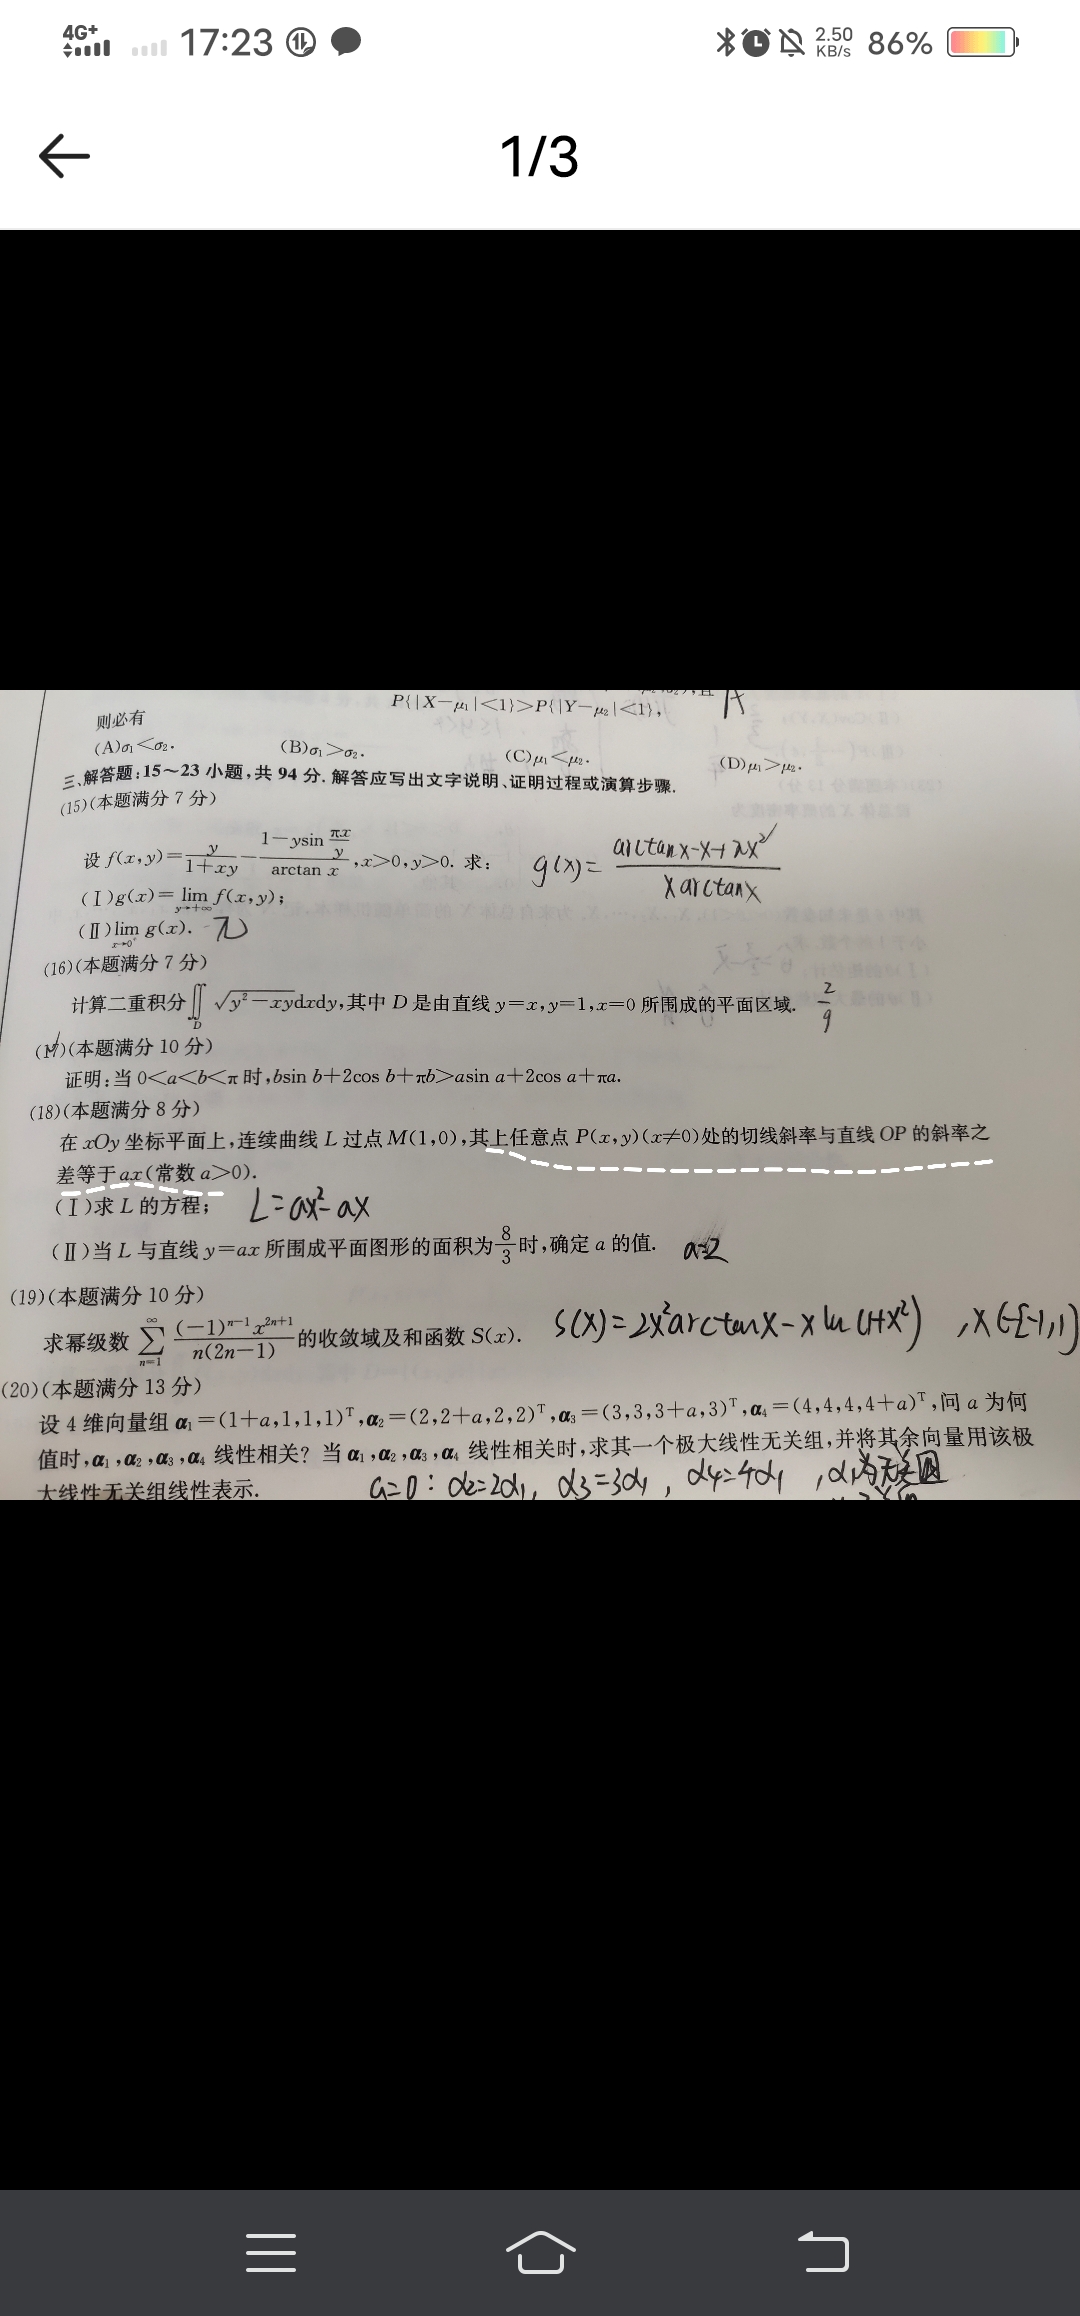 4G+ 17:23 2.50 KB/s 86%
1/3
P{|X−μ₁|<1}>P{|Y−μ₂|<1},
则必有
(A)σ₁<σ₂. (B)σ₁>σ₂. (C)μ₁<μ₂. (D)μ₁>μ₂.
三、解答题:15～23小题,共94分.解答应写出文字说明、证明过程或演算步骤.
(15)(本题满分7分)
设 f(x,y)=y/(1+xy)−(1−ysin(πx/y))/arctan x,x>0,y>0. 求: g(x)=(arctanx-x+πx²)/(xarctanx)
(Ⅰ)g(x)=lim_{y→+∞} f(x,y);
(Ⅱ)lim_{x→0⁺} g(x). π
(16)(本题满分7分)
计算二重积分∬_D √(y²−xy)dxdy,其中D是由直线y=x,y=1,x=0所围成的平面区域. 2/9
(17)(本题满分10分)
证明:当0<a<b<π时,bsin b+2cos b+πb>asin a+2cos a+πa.
(18)(本题满分8分)
在xOy坐标平面上,连续曲线L过点M(1,0),其上任意点P(x,y)(x≠0)处的切线斜率与直线OP的斜率之
差等于ax(常数a>0).
(Ⅰ)求L的方程; L=ax²-ax
(Ⅱ)当L与直线y=ax所围成平面图形的面积为8/3时,确定a的值. a=2
(19)(本题满分10分)
求幂级数∑_{n=1}^{∞} (−1)ⁿ⁻¹x²ⁿ⁺¹/(n(2n−1))的收敛域及和函数S(x). S(x)=2x²arctanx-xln(1+x²) ,x∈[-1,1]
(20)(本题满分13分)
设4维向量组α₁=(1+a,1,1,1)ᵀ,α₂=(2,2+a,2,2)ᵀ,α₃=(3,3,3+a,3)ᵀ,α₄=(4,4,4,4+a)ᵀ,问a为何
值时,α₁,α₂,α₃,α₄线性相关?当α₁,α₂,α₃,α₄线性相关时,求其一个极大线性无关组,并将其余向量用该极
大线性无关组线性表示. a=0:α2=2α1, α3=3α1, α4=4α1 ,α1为无关组